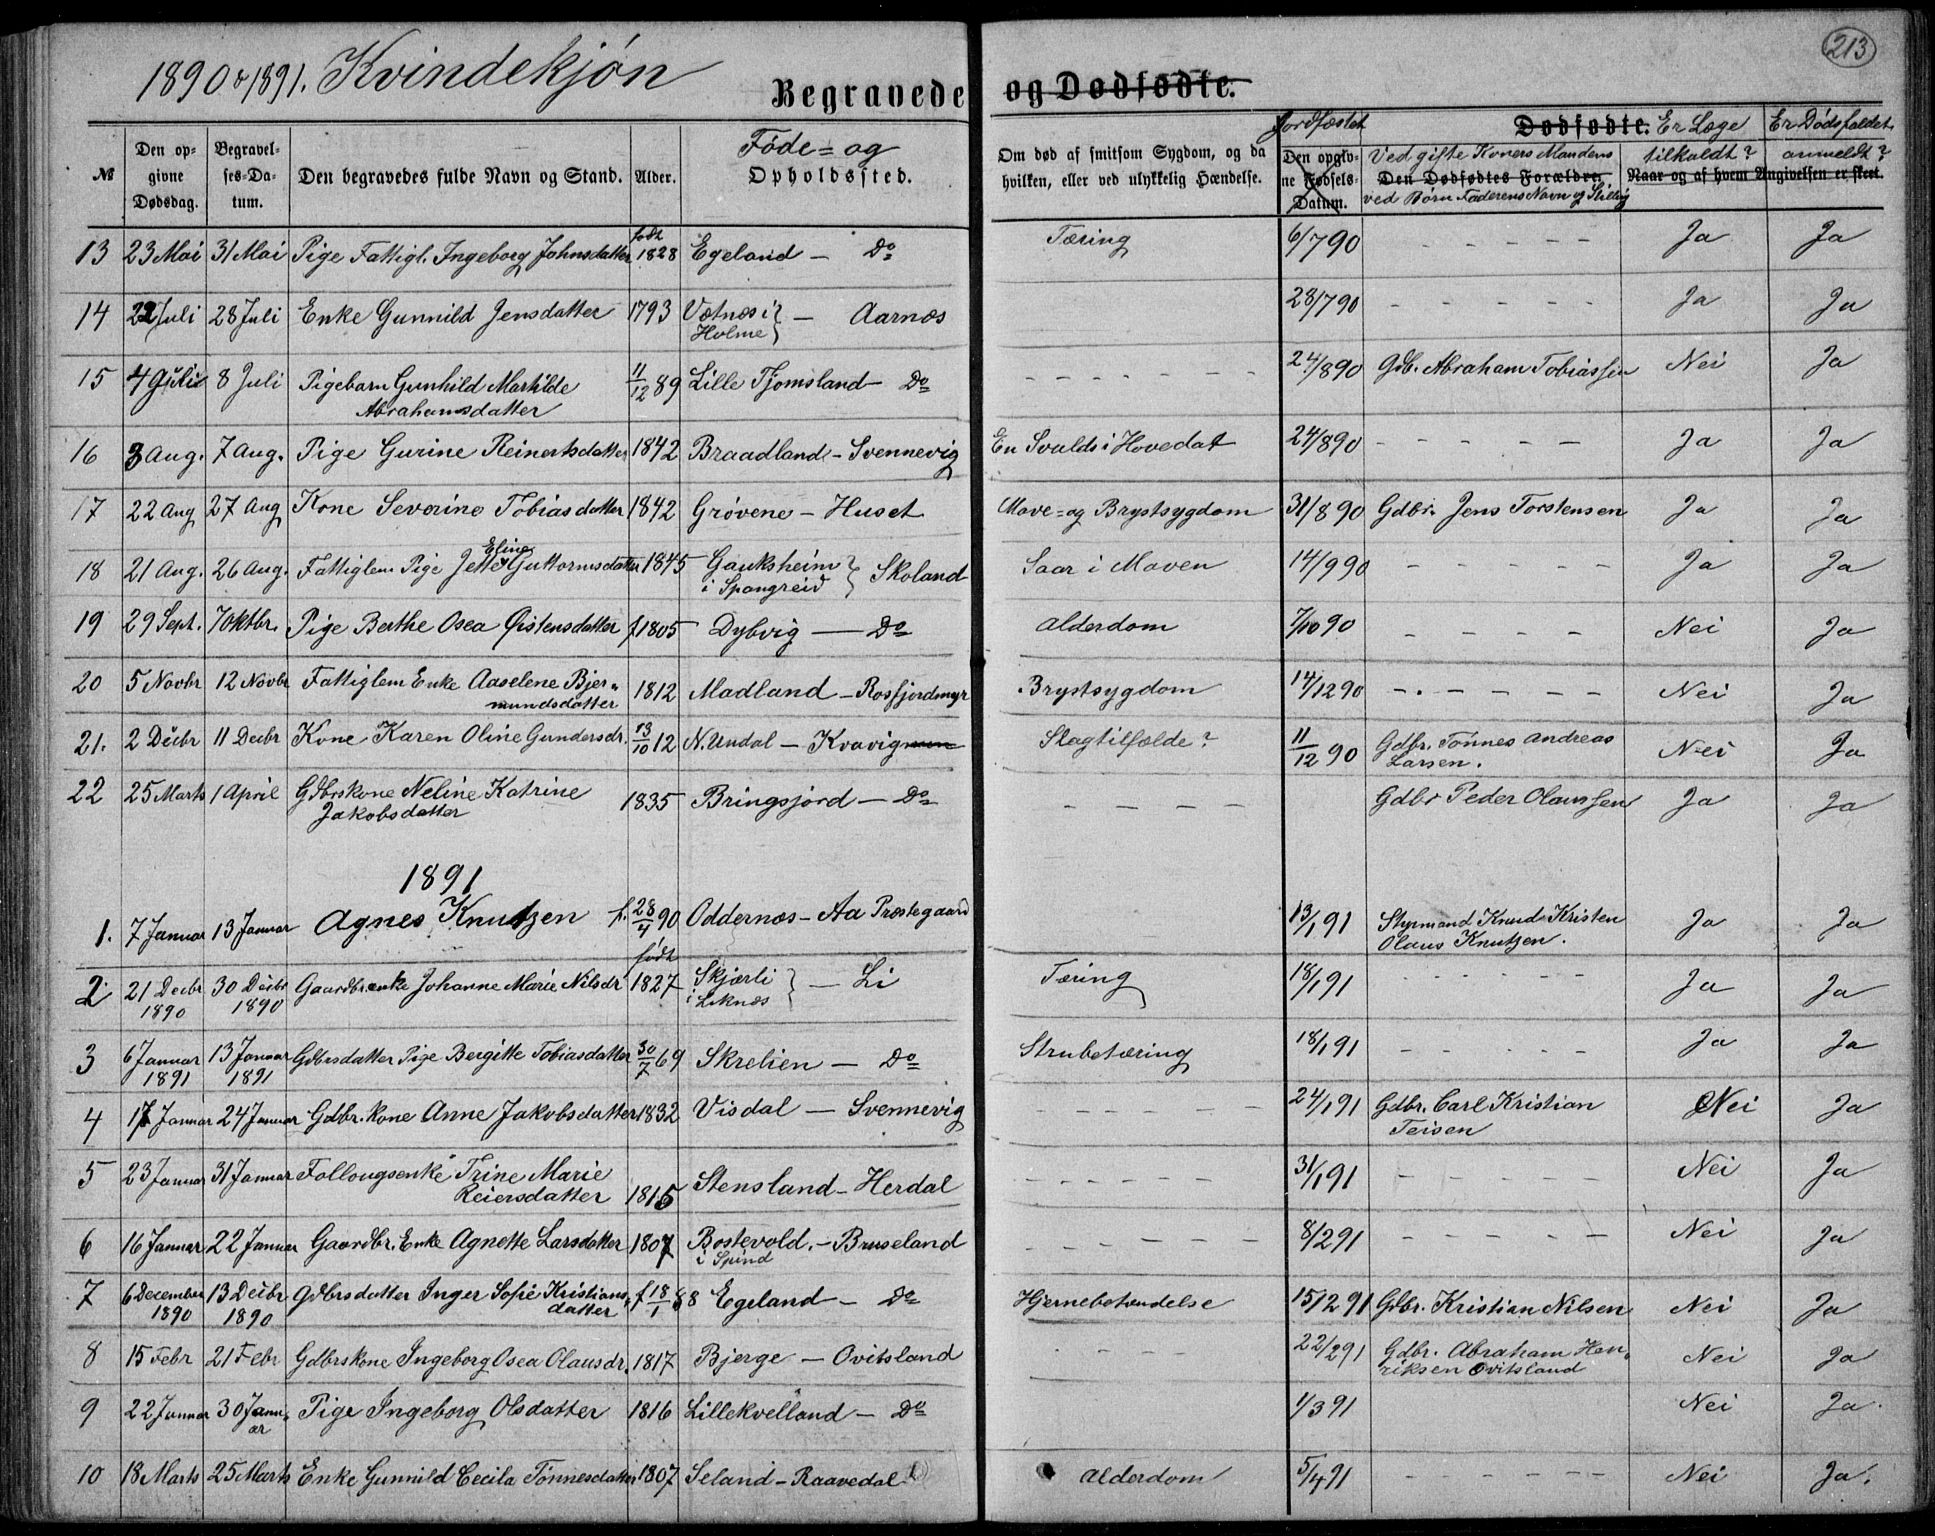 213
1890 & 1891. Kvindekjøn
Begravede og Dødfødte.
№
Den opgivne Dødsdag.
Begravelses-Datum.
Den begravedes fulde Navn og Stand.
Alder.
Føde- og Opholdssted.
Om død af smitsom Sygdom, og da hvilken, eller ved ulykkelig Hændelse.
Jordfæstet
Den opgivne Fødsels-Datum.
Dødfødte.
Ved gifte Koners Mandens
Den Dødfødtes Forældre.
ved Børn Faderens Navn og Stilling
Er Læge tilkaldt?
Er Dødsfaldet anmeldt?
Naar og af hvem Angivelsen er skeet.
13 23 Mai 31 Mai Pige Fattigl. Ingeborg Johnsdatter født 1828 Egeland — Do Tæring 6/7 90 - - - - - Ja Ja
14 22 Juli 28 Juli Enke Gunnild Jensdatter 1793 Vætnæs i Holme } — Aarnæs 28/7 90 - - - - - Ja Ja
15 4 Juli 8 Juli Pigebarn Gunhild Mathilde 11/12 89 Lille Tjomsland — Do - - - - - 24/8 90 Gdb. Abraham Tobiassen Nei Ja
Abrahamsdatter
16 3 Aug. 7 Aug. Pige Gurine Reinertsdatter 1842 Braadland - Svennevig En Svulds i Hovedat 24/8 90 - - - - - Ja Ja
17 22 Aug 27 Aug Kone Severine Tobiasdatter 1842 Grövene - Huset Mave = og Brystsygdom 31/8 90 Gdbr. Jens Torstensen Ja Ja
18 21 Aug. 26 Aug. Fattiglem Pige Jette Eline Guttormsdatter 1845 Gauksheim i Spangreid } Skoland Saar i Maven 14/9 90 - - - - - Ja Ja
19 29 Sept. 7 Oktbr. Pige Berthe Osea Øistensdatter f 1805 Dybvig — Do Alderdom 7/10 90 - - - - - Nei Ja
20 5 Novbr 12 Novbr Fattiglem Enke Aaselene Bjer- 1812 Madland - Rosfjordmyr Brystsygdom 14/12 90 - - - - - Nei Ja
mundsdatter
21. 2 Decbr 11 Decbr Kone Karen Oline Gundersdr. 13/10 12 N. Undal — Kvavig Slagtilfælde? 11/12 90 Gdbr. Tönnes Andreas Nei Ja
Larsen.
22 25 Marts 1 April Gdbrskone Neline Katrine 1835 Bringsjord — Do - - - - Gdbr Peder Olaussen Ja Ja
Jakobsdatter
1891
1. 7 Januar 13 Januar Agnes Knutzen f. 28/4 90 Oddernæs - Aa Præstegaard 13/1 91 Styrmand Knud Kristen Ja Ja
Olaus Knutzen.
2 21 Decbr 1890 30 Decbr 1890 Gaardbrenke Johanne Marie Nilsdr født 1827 Skjærli i Leknæs } — Li Tæring 18/1 91 - - - - - Ja Ja
3 6 Januar 1891 13 Januar 1891 Gdbrsdatter Pige Bergitte Tobiasdatter 30/7 69 Skrelien — Do Strubetæring 18/1 91 - - - - Ja Ja
4 17 Januar 24 Januar Gdbr. kone Anne Jakobsdatter 1832 Visdal — Svennevig - - - - 24/1 91 Gdbr. Carl Kristian Nei Ja
Teisen
5 23 Januar 31 Januar Follougsenke Trine Marie 1815 Stensland - Herdal - - - - - 31/1 91 - - - - Nei Ja
Reiersdatter
6 16 Januar 22 Januar Gaardbr. Enke Agnette Larsdatter 1807 Bostevold i Spind - Bruseland - - - - - 8/2 91 - - - - Nei Ja
7 6 December 1890 13 Decbr 1890 Gdbrsdatter Inger Sofie Kristians- f 18/1 88 Egeland — Do Hjernebetændelse 15/12 91 Gdbr. Kristian Nilsen Nei Ja
datter
8 15 Febr 21 Febr Gdbrskone Ingeborg Osea Olausdr. 1817 Bjerge — Ovitsland - - - 22/2 91 Gdbr. Abraham Hen- Nei Ja
riksen Ovitsland
9 22 Januar 30 Januar Pige Ingeborg Olsdatter 1816 Lillekvelland — Do 1/3 91 Nei Ja.
10 18 Marts 25 Marts Enke Gunnild Cecila Tönnesdatter 1807 Seland - Raavedal Alderdom 5/4 91 - - - - - Nei Ja.